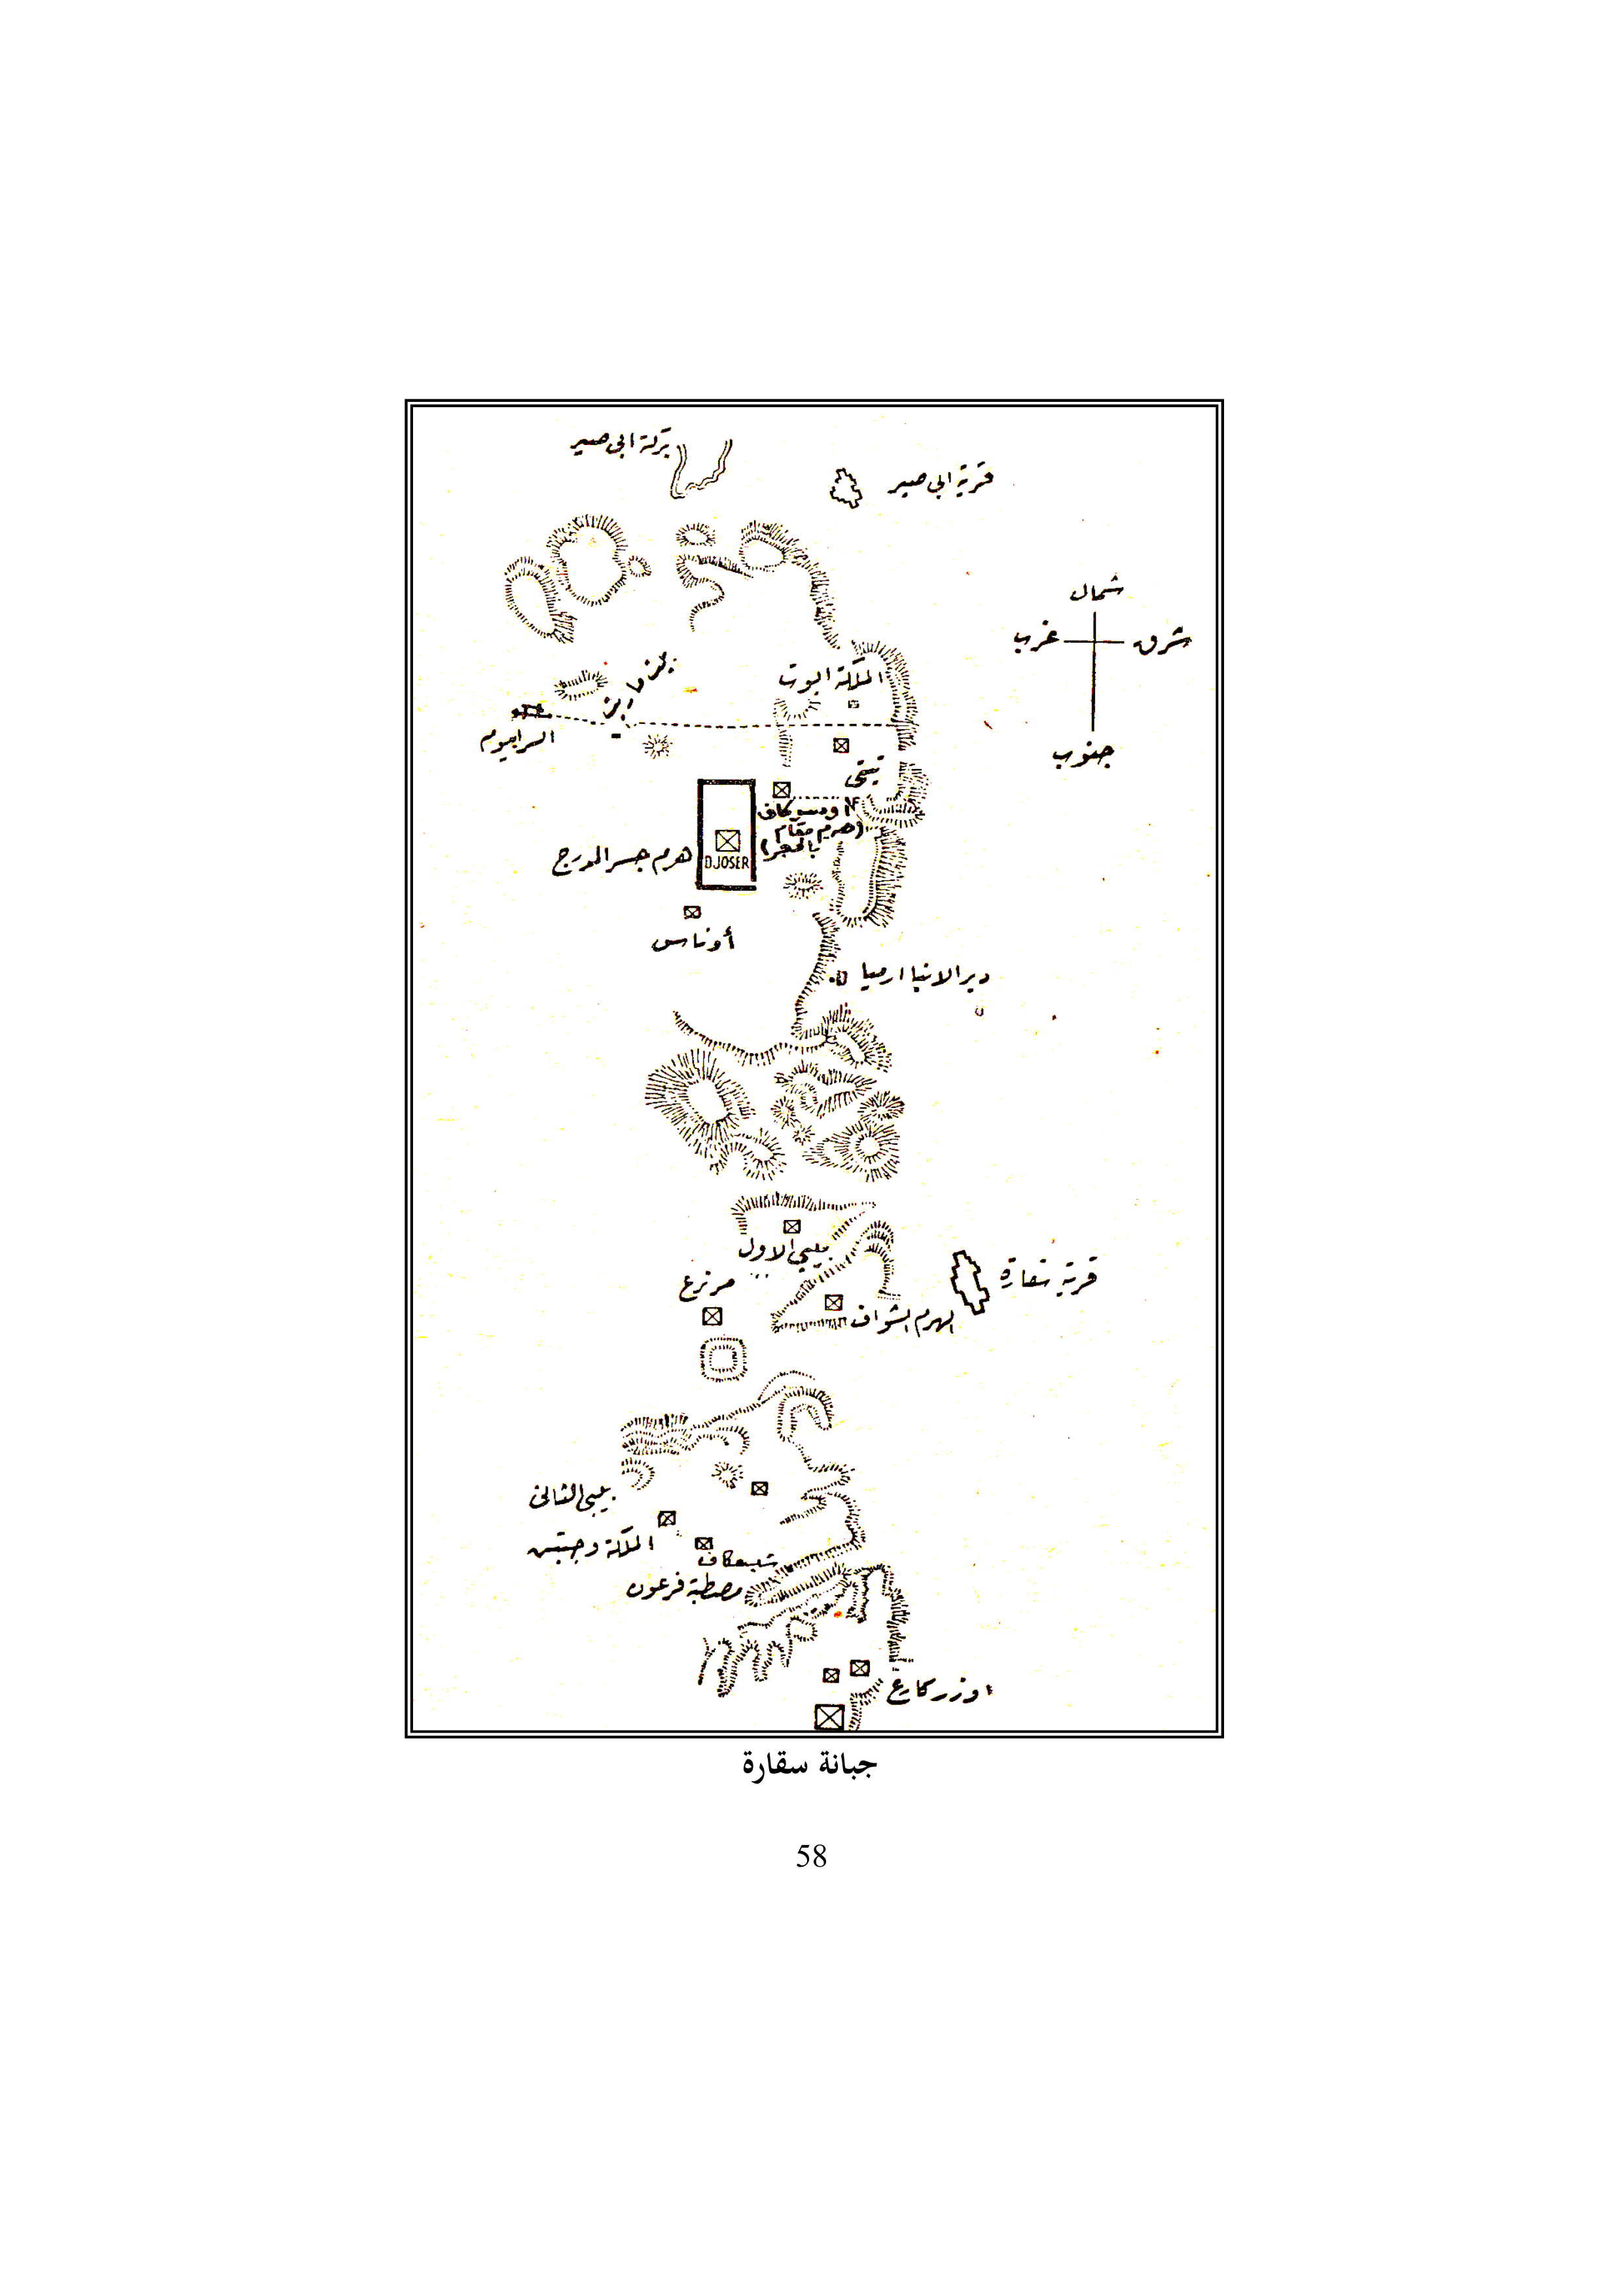 بركة ابى صير
قرية ابى صير
شمال
غرب
شرق
جنوب
الملكة ايبوت
السرابيوم
تيتى
اوسركاف
(هرم مقام
بالحجر)
DJOSER
هرم جسر المدرج
أوناس
دير الانبا ارميا
بيبي الاول
مرنرع
قرية سقارة
الهرم الشواف
بيبى الثانى
الملكة وجبتن
شبسكاف
مصطبة فرعون
اوزركارع
جبانة سقارة
58